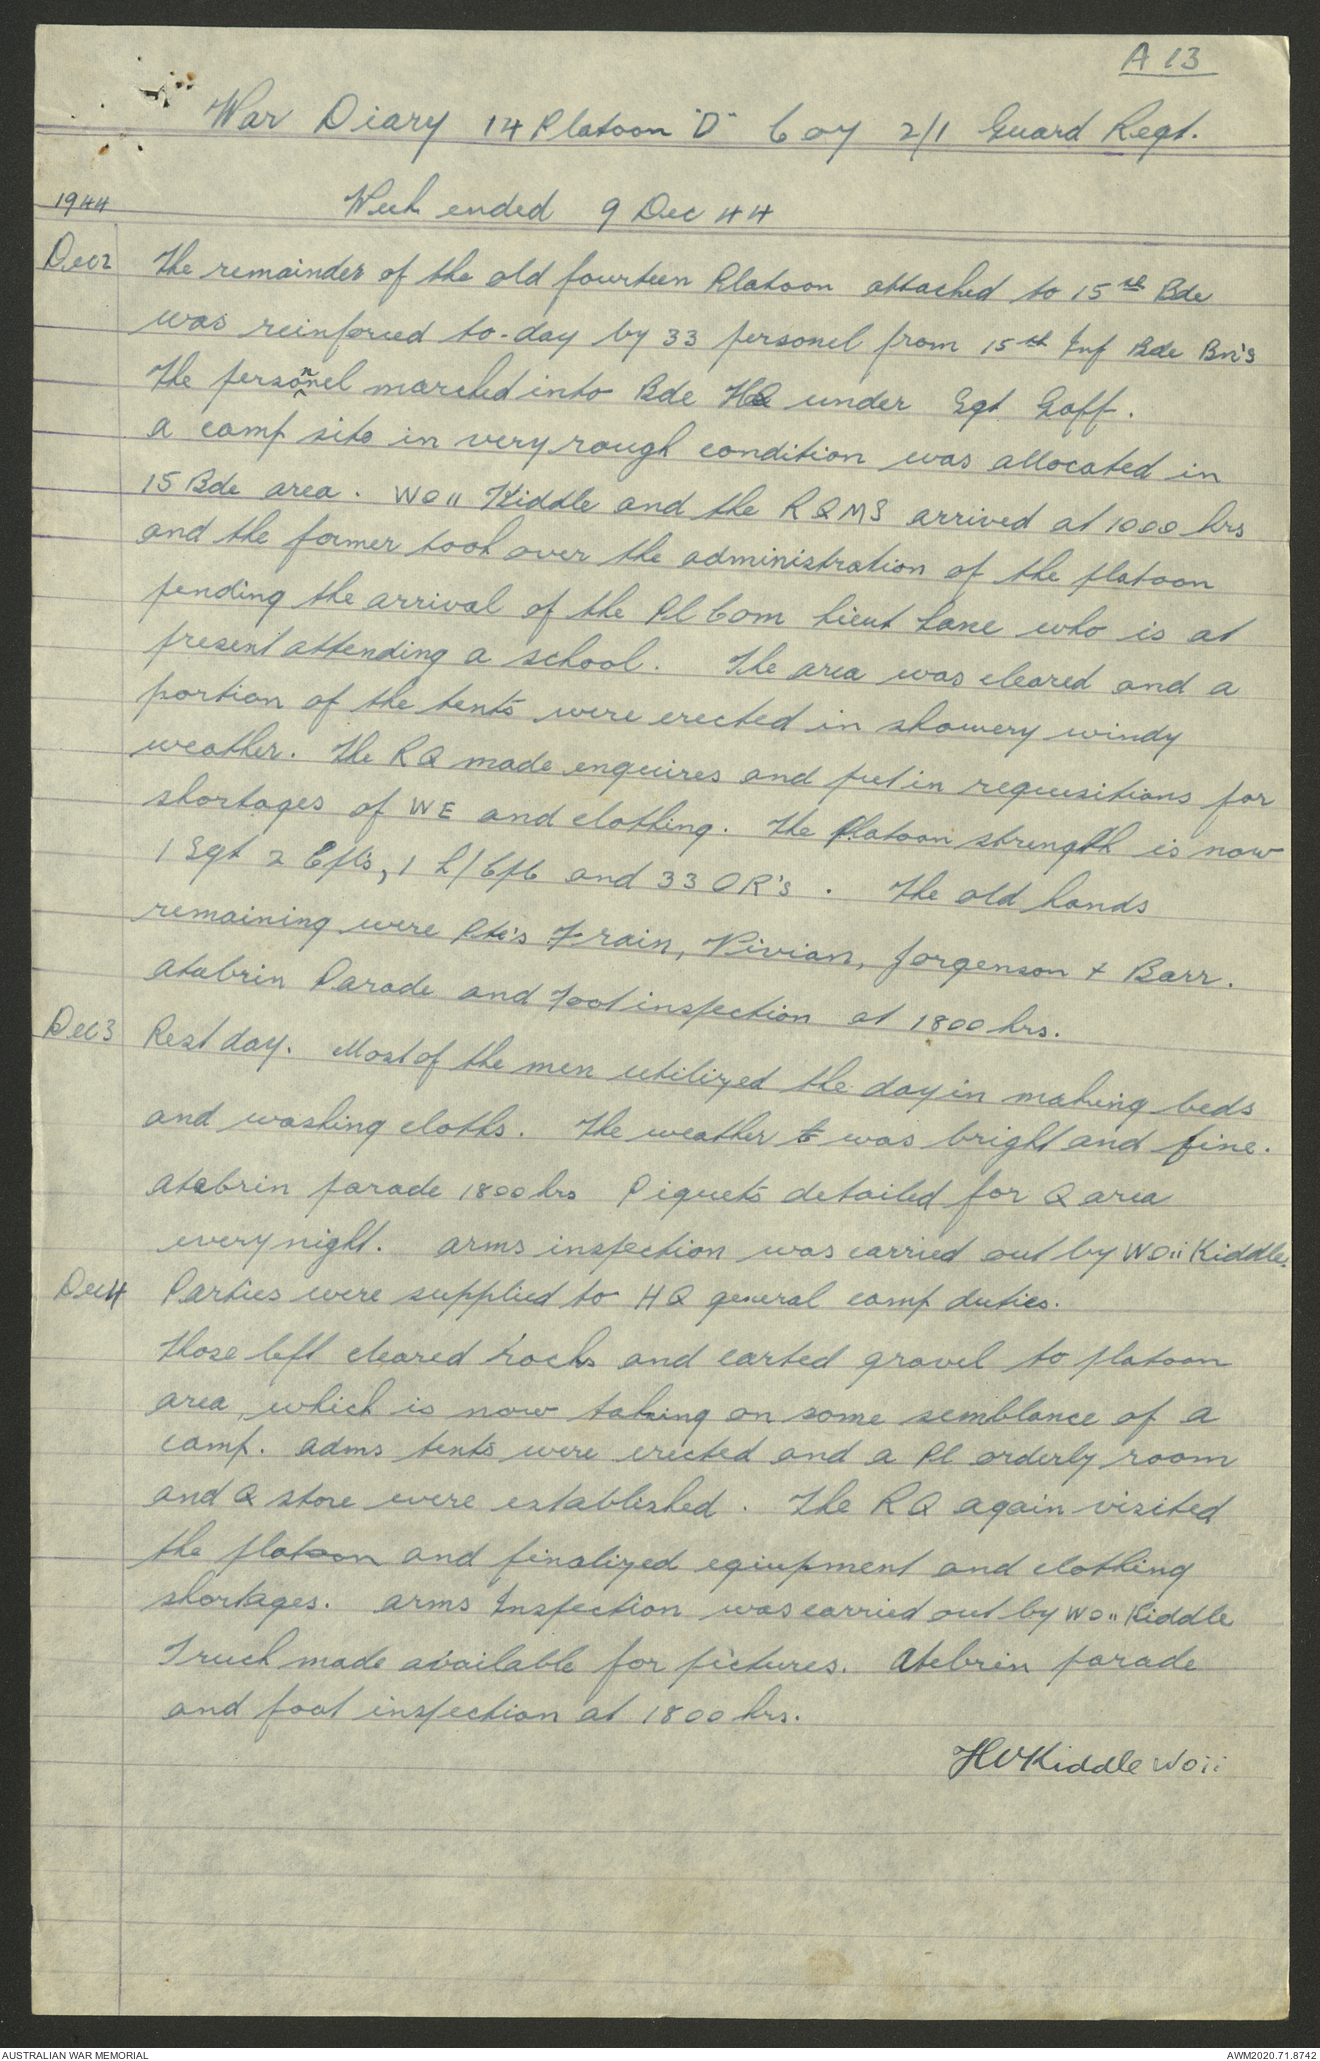 A 13
War Diary 14 Platoon "D" Coy 2/1 Guard Regt.
1944 Week ended 9 Dec 44
Dec 2 The remainder of the old fourteen Platoon attached to 15th Bde
was reinforced to-day by 33 personel from 15th Inf Bde Bn's
The personnel marched into Bde HQ under Sgt Goff.
A camp site in very rough condition was allocated in
15 Bde area. WO ii Kiddle and the RQMS arrived at 1000 hrs
and the former took over the administration of the platoon
pending the arrival of the Pl Com Lieut Lane who is at
present attending a school. The area was cleared and a
portion of the tents were erected in showery windy
weather. The RQ made enquires and put in requisitions for
shortages of WE and clothing. The Platoon strength is now
1 Sgt 2 Cpl's, 1 L/Cpl and 33 OR's. The old hands
remaining were Pte's Frain, Vivian, Jorgenson + Barr.
Atabrin Parade and Foot inspection at 1800 hrs.
Dec 3 Rest day. Most of the men utilized the day in making beds
and washing cloths. The weather to was bright and fine.
Atebrin parade 1800 hrs Piquets detailed for Q area
every night. Arms inspection was carried out by WO ii Kiddle.
Dec 4 Parties were supplied to HQ general camp duties.
Those left cleared rocks and carted gravel to platoon
area, which is now taking on some semblance of a
camp. Adms tents were erected and a Pl orderly room
and Q store were established. The RQ again visited
the platoon and finalized equipment and clothing
shortages. Arms Inspection was carried out by WO ii Kiddle
Truck made available for pictures. Atebrin parade
and foot inspection at 1800 hrs.
HV Kiddle WO ii
AUSTRALIAN WAR MEMORIAL AWM2020.71.8742